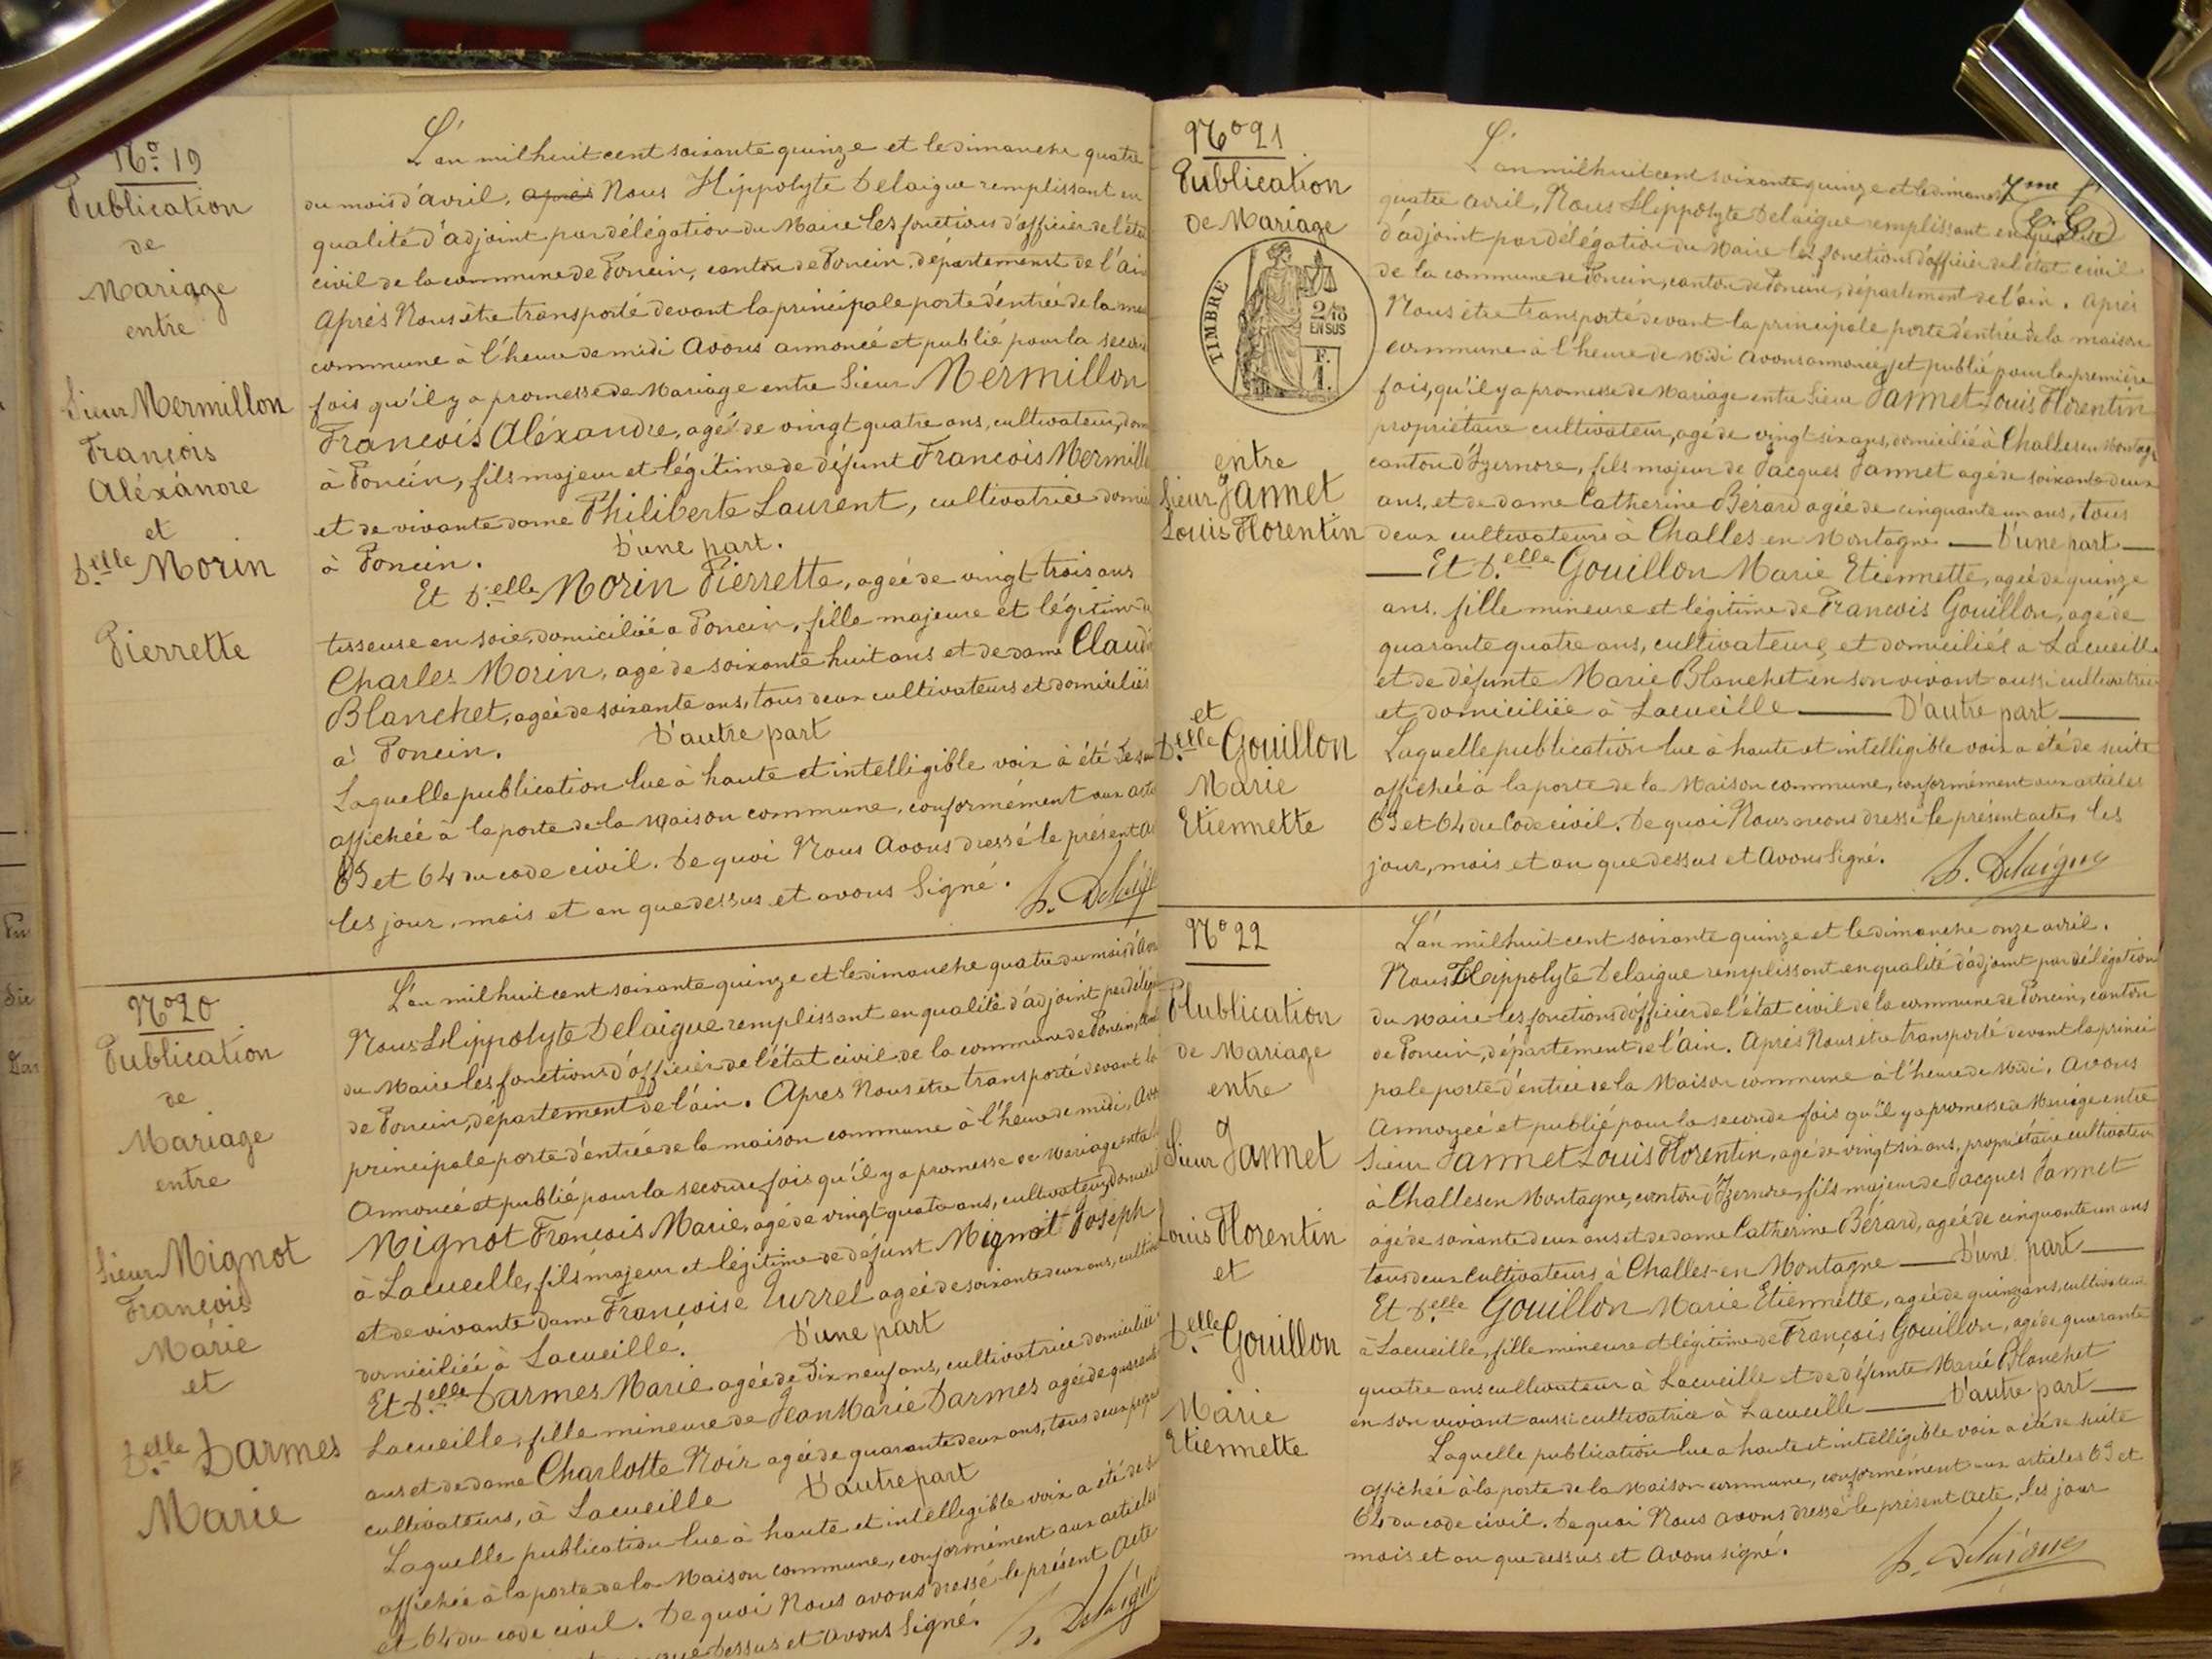 No. 19
Publication
de
Mariage
entre
Sieur Mermillon
François
Aléxandre
et
Delle Morin
Pierrette
L'an mil huit cent soixante quinze et le dimanche quatre
du mois d'avril, après Nous Hippolyte Delaigue remplissant en
qualité d'adjoint par délégation du Maire les fonctions d'officier de l'état
civil de la commune de Poncin, canton de Poncin, département de l'Ain
Après Nous être transporté devant la principale porte d'entrée de la
commune à l'heure de midi Avons annoncé et publié pour la
fois qu'il y a promesse de Mariage entre Sieur Mermillon
François Aléxandre, agé de vingt quatre ans, cultivateur,
à Poncin, fils majeur et légitime de défunt François
et de vivante dame Philiberte Laurent, cultivatrice
à Poncin. D'une part.
Et Delle Morin Pierrette, agée de vingt trois ans
tisseuse en soie, domiciliée a Poncin, fille majeure et légitime de
Charles Morin, agé de soixante huit ans et de dame
Blanchet, agée de soixante ans, tous deux cultivateurs et domiciliés
à Poncin. D'autre part
Laquelle publication lue à haute et intelligible voix à été
affichée à la porte de la Maison commune, conformément aux
63 et 64 du code civil. De quoi Nous Avons dressé le présent
les jour, mois et an que dessus et avons Signé.
No 20
Publication
de
Mariage
entre
Sieur Mignot
François
Marie
et
Delle Darmes
Marie
L'an mil huit cent soixante quinze et le dimanche quatre du mois
Nous Hippolyte Delaigue remplissant en qualité d'adjoint
du Maire les fonctions d'officier de l'état civil de la commune de Poncin,
de Poncin, département de l'Ain. Après Nous être transporté devant la
principale porte d'entrée de la maison commune à l'heure de midi,
Annoncé et publié pour la seconde fois qu'il y a promesse de Mariage
Mignot François Marie, agé de vingt quatre ans, cultivateur,
à Lacueille, fils majeur et légitime de défunt Mignot Joseph
et de vivante Dame Françoise Turrel agée de soixante deux ans,
domiciliée à Lacueille. D'une part
Et Delle Darmes Marie agée de Dix neuf ans, cultivatrice domiciliée
Lacueille, fille mineure de Jean Marie Darmes agé de
ans et de dame Charlotte Noir agée de quarante deux ans, tous deux
cultivateurs, à Lacueille D'autre part
Laquelle publication lue à haute et intelligible voix a été de
affichée à la porte de la Maison commune, conformément aux articles
et 64 du code civil. De quoi Nous avons dressé le présent Acte
que Dessus et Avons Signé.
No 21
Publication
de Mariage
TIMBRE
2/10
EN SUS
F.
1.
entre
Sieur Jannet
Louis Florentin
et
Delle Gouillon
Marie
Etiennette
7me
L'an mil huit cent soixante quinze et le dimanche
quatre avril, Nous Hippolyte Delaigue remplissant en qualité
d'adjoint par délégation du Maire les fonctions d'officier de l'état civil
de la commune de Poncin, canton de Poncin, département de l'ain. Après
Nous être transporté devant la principale porte d'entrée de la maison
commune à l'heure de Midi Avons annoncé et publié pour la première
fois, qu'il y a promesse de Mariage entre Sieur Jannet Louis Florentin
propriétaire cultivateur, agé de vingt six ans, domicilié à Challes en
canton d'Izernore, fils majeur de Jacques Jannet agé de soixante deux
ans, et de dame Catherine Bérard agée de cinquante un ans, tous
deux cultivateurs à Challes-en Montagne — D'une part —
— Et Delle Gouillon Marie Etiennette, agée de quinze
ans. fille mineure et légitime de François Gouillon, agé de
quarante quatre ans, cultivateurs, et domiciliés a Lacueille
et de défunte Marie Blanchet en son vivant aussi cultivatrice
et domiciliée à Lacueille — D'autre part —
Laquelle publication lue à haute et intelligible voix a été de suite
affichée à la porte de la Maison commune, conformément aux articles
63 et 64 du Code civil. De quoi Nous avons dressé le présent acte, les
jour, mois et an que dessus et Avons Signé.
H. Delaigue
No 22
Publication
de Mariage
entre
Sieur Jannet
Louis Florentin
et
Delle Gouillon
Marie
Etiennette
L'an mil huit cent soixante quinze et le dimanche onze avril.
Nous Hippolyte Delaigue remplissant en qualité d'adjoint par délégation
du Maire les fonctions d'officier de l'état civil de la commune de Poncin, canton
de Poncin, département de l'Ain. Après Nous être transporté devant la princi
pale porte d'entrée de la Maison commune à l'heure de Midi. Avons
Annoncé et publié pour la seconde fois qu'il y a promesse de Mariage entre
Sieur Jannet Louis Florentin, agé de vingt six ans, propriétaire cultivateur
à Challes en Montagne, canton d'Izernore, fils majeur de Jacques Jannet
agé de soixante deux ans et de dame Catherine Bérard, agée de cinquante un ans
tous deux Cultivateurs à Challes-en Montagne — D'une part —
Et Delle Gouillon Marie Etiennette, agée de quinze ans, cultivatrice
à Lacueille, fille mineure et légitime de François Gouillon, agé de quarante
quatre ans cultivateur à Lacueille et de défunte Marie Blanchet
en son vivant aussi cultivatrice à Lacueille — D'autre part —
Laquelle publication lue a haute et intelligible voix a été de suite
affichée à la porte de la Maison commune, conformément aux articles 63 et
64 du code civil. De quoi Nous avons dressé le présent Acte, les jour
mois et an que dessus et Avons signé.
H. Delaigue